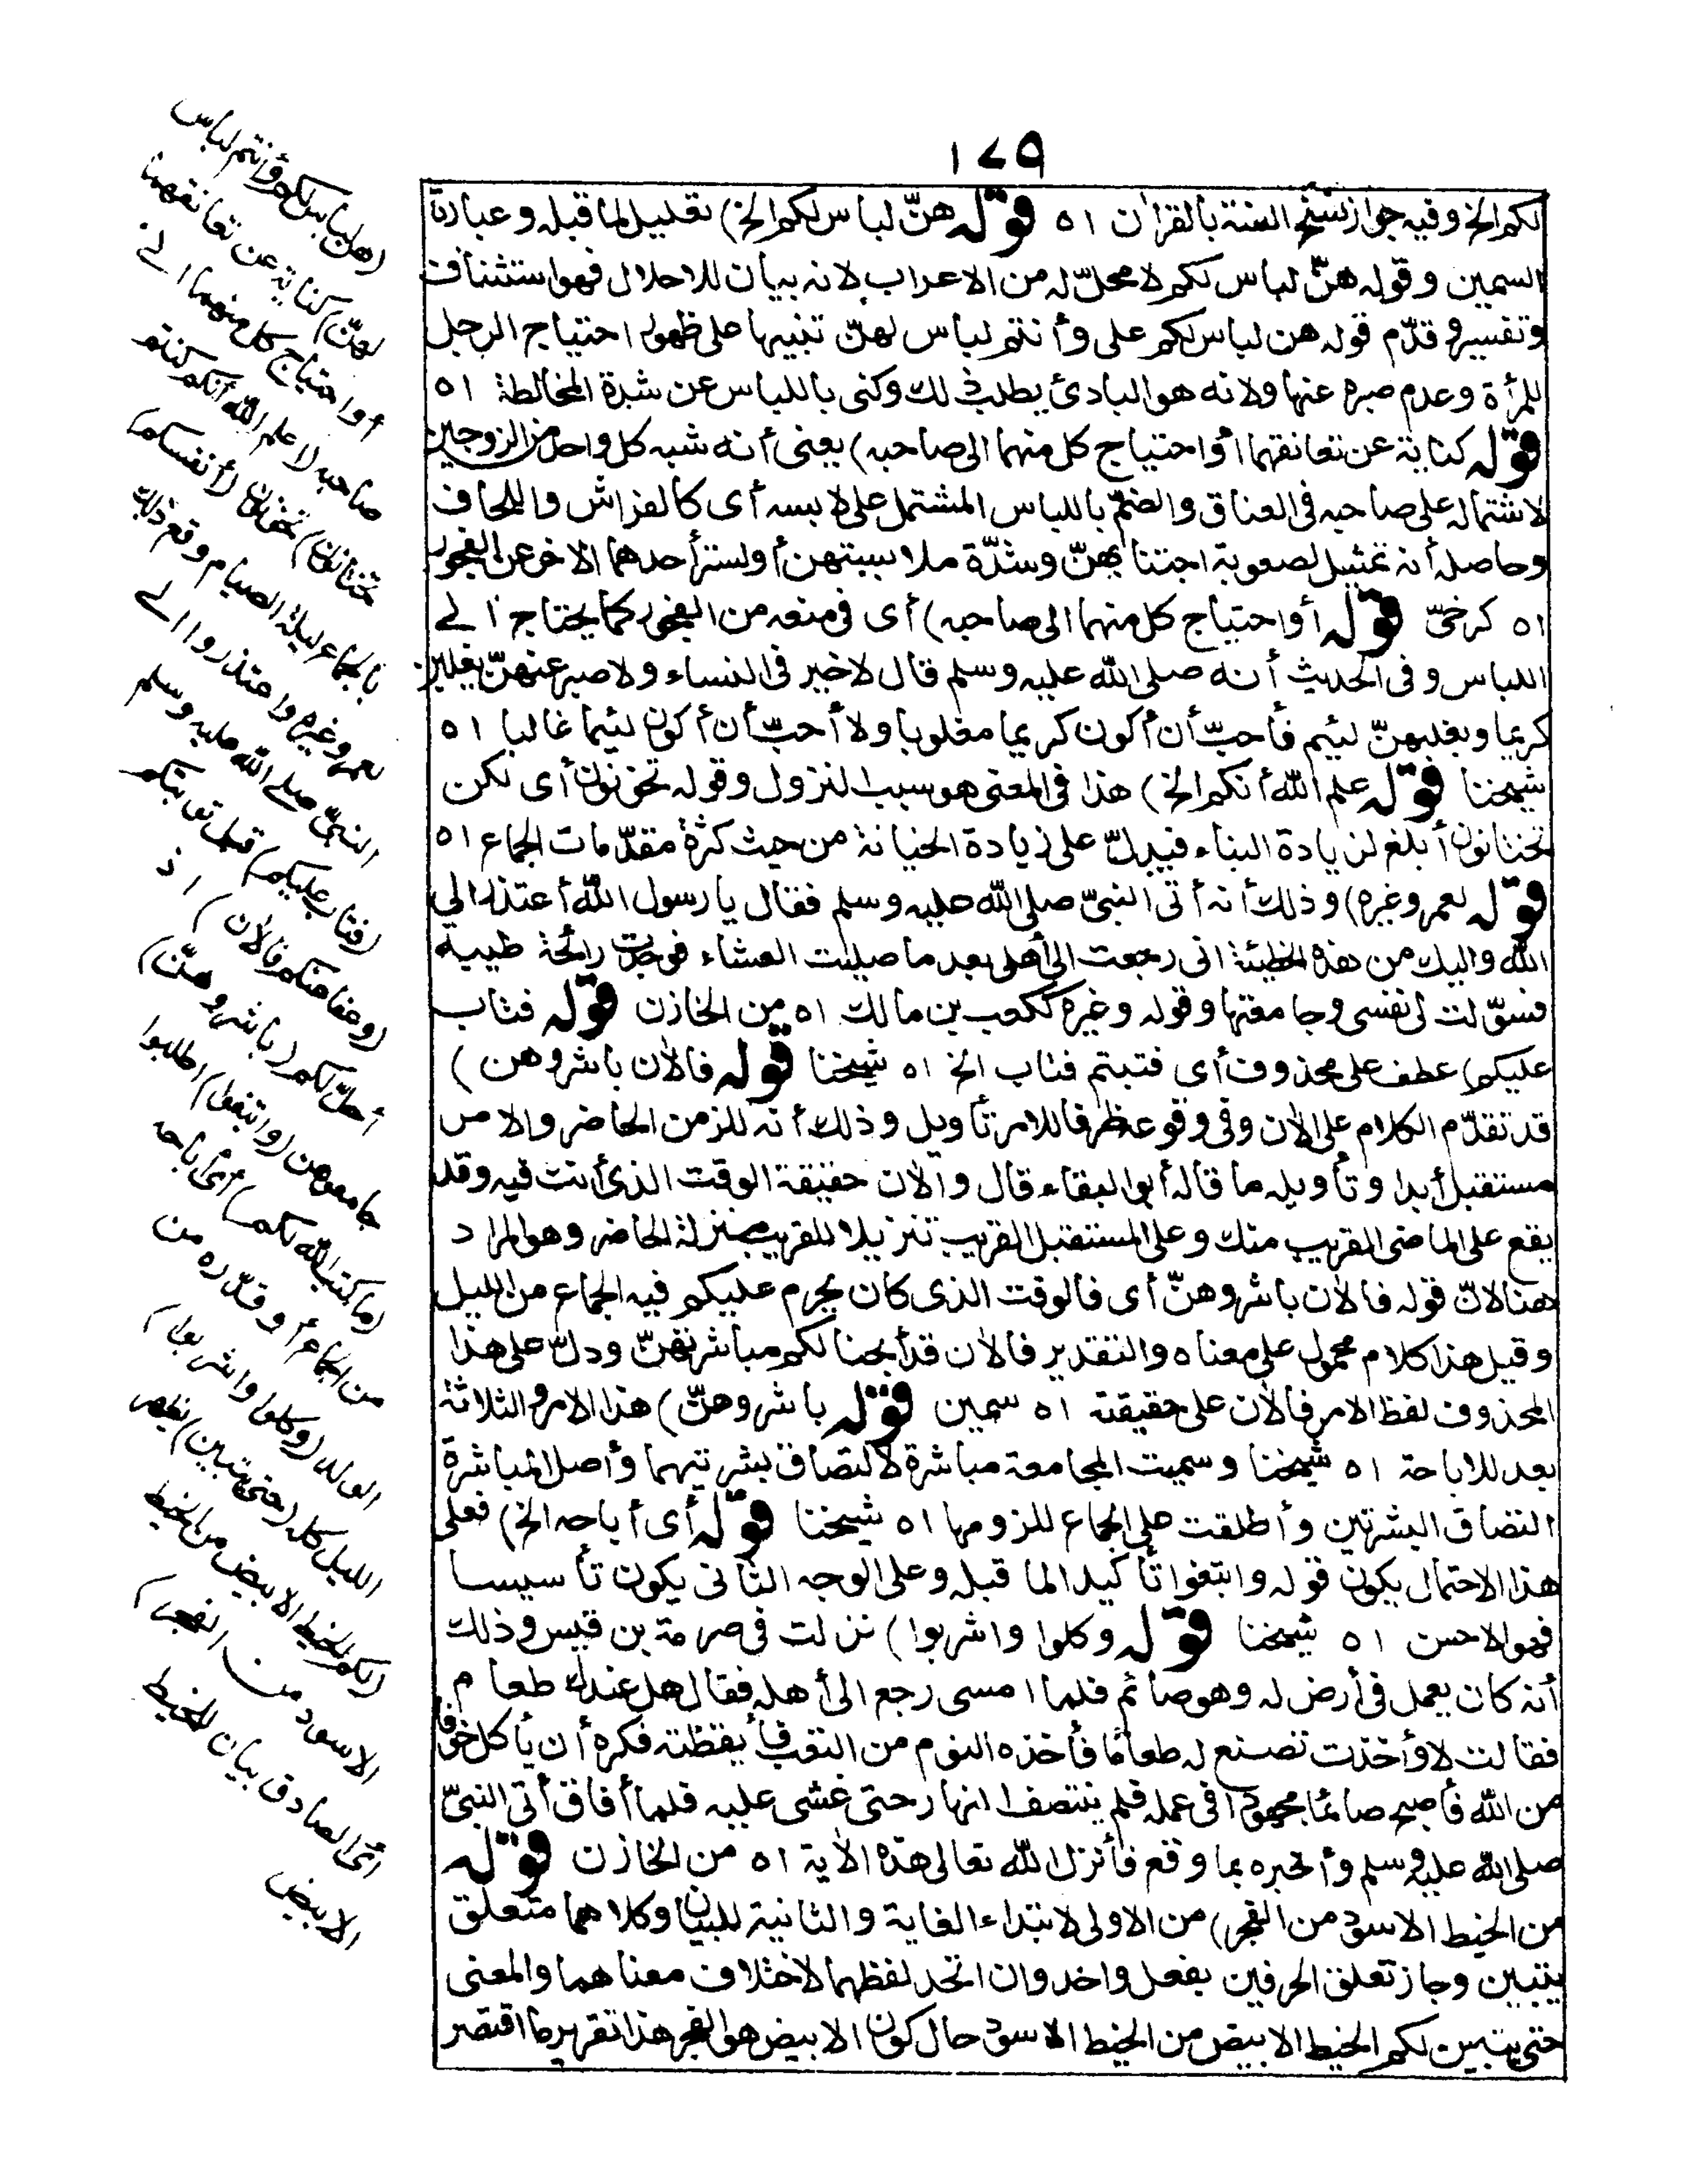 ١٧٩
لكم الخ وفيه جواز نسخ السنة بالقرآن اه قوله هنّ لباس لكم الخ) تعليل لما قبله وعبارة
السمين وقوله هنّ لباس لكم لا محلّ له من الاعراب لانه بيان للاحلال فهو استئناف
وتفسير وقدّم قوله هن لباس لكم على وأنتم لباس لهنّ تنبيها على ظهور احتياج الرجل
للمرأة وعدم صبره عنها ولانه هو البادئ بطلب ذلك وكنى باللباس عن شدة المخالطة اه
قوله كناية عن تعانقهما أو احتياج كل منهما الى صاحبه) يعنى أنه شبه كل واحد من الزوجين
لاشتماله على صاحبه فى العناق والضمّ باللباس المشتمل على لابسه أى كالفراش واللحاف
وحاصله أنه تمثيل لصعوبة اجتنابهنّ وشدّة ملابستهن أو لستر أحدهما الاخر عن الفجور
اه كرخىّ قوله أو احتياج كل منهما الى صاحبه) أى فى منعه من الفجور كما يحتاج الى
اللباس وفى الحديث أنه صلى الله عليه وسلم قال لا خير فى النساء ولا صبر عنهنّ يغلبن
كريما ويغلبهنّ لئيم فأحبّ أن أكون كريما مغلوبا ولا أحبّ أن أكون لئيما غالبا اه
شيخنا قوله علم الله أنكم الخ) هذا فى المعنى هو سبب النزول وقوله تخونون أى لكن
تختانون أبلغ لزيادة البناء فيدلّ على زيادة الخيانة من حيث كثرة مقدّمات الجماع اه
قوله لعمر وغيره) وذلك أنه أتى النبىّ صلى الله عليه وسلم فقال يا رسول الله أعتذر الى
الله واليك من هذه الخطيئة انى رجعت الى أهلى بعد ما صليت العشاء فوجدت رائحة طيبة
فسوّلت لى نفسى وجامعتها وقوله وغيره ككعب بن مالك اه من الخازن قوله فتاب
عليكم) عطف على محذوف أى فتبتم فتاب الخ اه شيخنا قوله فالآن باشروهن)
قد تقدّم الكلام على الآن وفى وقوعه ظرفا للامر تأويل وذلك أنه للزمن الحاضر والامر
مستقبل أبدا وتأويله ما قاله أبو البقاء قال والآن حقيقة الوقت الذى أنت فيه وقد
يقع على الماضى القريب منك وعلى المستقبل القريب تنزيلا للقريب منزلة الحاضر وهو المراد
هنا لانّ قوله فالآن باشروهنّ أى فالوقت الذى كان يحرم عليكم فيه الجماع من الليل
وقيل هذا كلام محمول على معناه والتقدير فالآن قد أبحنا لكم مباشرتهنّ ودلّ على هذا
المحذوف لفظ الامر فالآن على حقيقته اه سمين قوله باشروهنّ) هذا الامر والثلاثة
بعد للاباحة اه شيخنا وسميت المجامعة مباشرة لالتصاق بشرتيهما وأصل المباشرة
التصاق البشرتين وأطلقت على الجماع للزومها اه شيخنا قوله أى أباحه الخ) فعلى
هذا الاحتمال يكون قوله وابتغوا تأكيدا لما قبله وعلى الوجه الثانى يكون تأسيسا
فهو الاحسن اه شيخنا قوله وكلوا واشربوا) نزلت فى صرمة بن قيس وذلك
أنه كان يعمل فى أرض له وهو صائم فلما امسى رجع الى أهله فقال هل عندك طعام
فقالت لا وأخذت تصنع له طعاما فأخذه النوم من التعب فأيقظته فكره أن يأكل خوفا
من الله فأصبح صائما مجهودا فى عمله فلم ينتصف النهار حتى غشى عليه فلما أفاق أتى النبىّ
صلى الله عليه وسلم وأخبره بما وقع فأنزل الله تعالى هذه الآية اه من الخازن قوله
من الخيط الاسود من الفجر) من الاولى لابتداء الغاية والثانية للبيان وكلاهما متعلق
يتبين وجاز تعلق الحرفين بفعل واحد وان اتحد لفظهما لاختلاف معناهما والمعنى
حتى يتبين لكم الخيط الابيض من الخيط الاسود حال كون الابيض هو الفجر هذا تقرير ما اقتصر
(هنّ لباس لكم وأنتم لباس
لهنّ) كناية عن تعانقهما
أو احتياج كل منهما الى
صاحبه (علم الله أنكم كنتم
تختانون) تخونون (أنفسكم)
بالجماع ليلة الصيام وقع ذلك
لعمر وغيره واعتذروا الى
النبىّ صلى الله عليه وسلم
(فتاب عليكم) قبل توبتكم
(وعفا عنكم فالآن) اذ
أحلّ لكم (باشروهنّ)
جامعوهن (وابتغوا) اطلبوا
(ما كتب الله لكم) أى أباحه
من الجماع أو قدّره من
الولد (وكلوا واشربوا)
الليل كله (حتى يتبين) يظهر
(لكم الخيط الابيض من الخيط
الاسود من الفجر)
أى الصادق بيان للخيط
الابيض